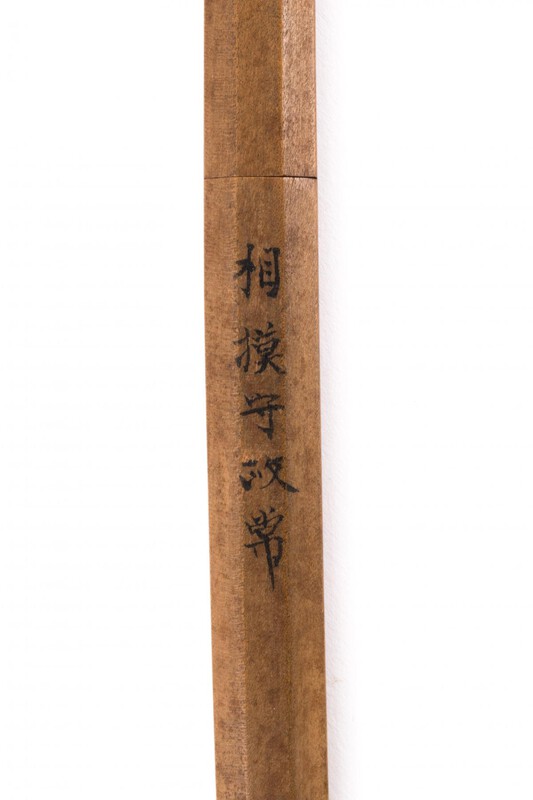 相摸守政常